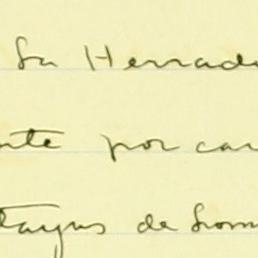 La Herrad
nte por car
tayns de Lom